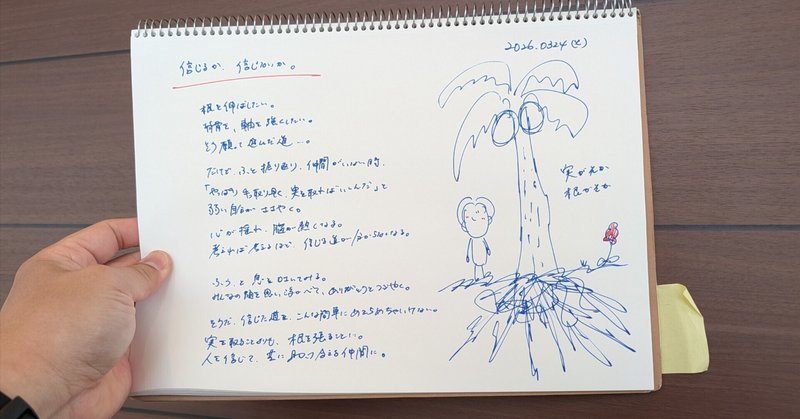 2026.0324(火)
信じるか、信じないか。
根を伸ばしたい。
背骨を、軸を強くしたい。
そう願って進んだ道…。
だけど、ふと振り返り、仲間がいない時、
「やっぱり手取り早く、実を取ればいいんだ」と
弱い自分がささやく。
心が揺れ、脳が熱くなる。
考えれば考えるほど、信じる道が分からなくなる。
ふぅ、と息を吐いてみる。
みんなの顔を思い浮かべて、ありがとうとつぶやく。
そうだ、信じた道を、こんな簡単にあきらめちゃいけない。
実を取ることよりも、根を張ること
人を信じて、互いに合える仲間に。
実がそだか
根がそだか